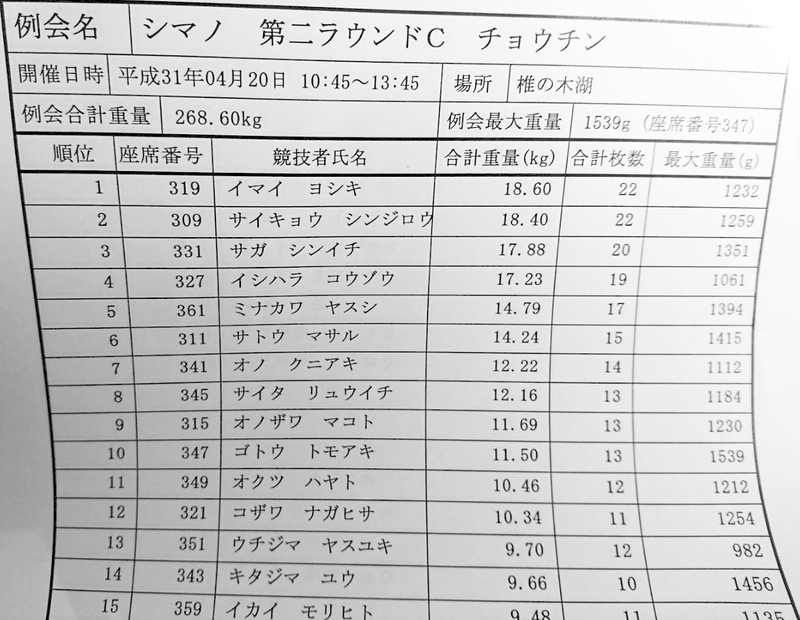 例会名 シマノ 第二ラウンドC チョウチン
開催日時 平成31年04月20日 10:45～13:45 場所 椎の木湖
例会合計重量 268.60kg 例会最大重量 1539g (座席番号347)
順位 座席番号 競技者氏名 合計重量(kg) 合計枚数 最大重量(g)
1 319 イマイ ヨシキ 18.60 22 1232
2 309 サイキョウ シンジロウ 18.40 22 1259
3 331 サガ シンイチ 17.88 20 1351
4 327 イシハラ コウゾウ 17.23 19 1061
5 361 ミナカワ ヤスシ 14.79 17 1394
6 311 サトウ マサル 14.24 15 1415
7 341 オノ クニアキ 12.22 14 1112
8 345 サイタ リュウイチ 12.16 13 1184
9 315 オノザワ マコト 11.69 13 1230
10 347 ゴトウ トモアキ 11.50 13 1539
11 349 オクツ ハヤト 10.46 12 1212
12 321 コザワ ナガヒサ 10.34 11 1254
13 351 ウチジマ ヤスユキ 9.70 12 982
14 343 キタジマ ユウ 9.66 10 1456
15 359 イカイ モリヒト 9.48 11 1135